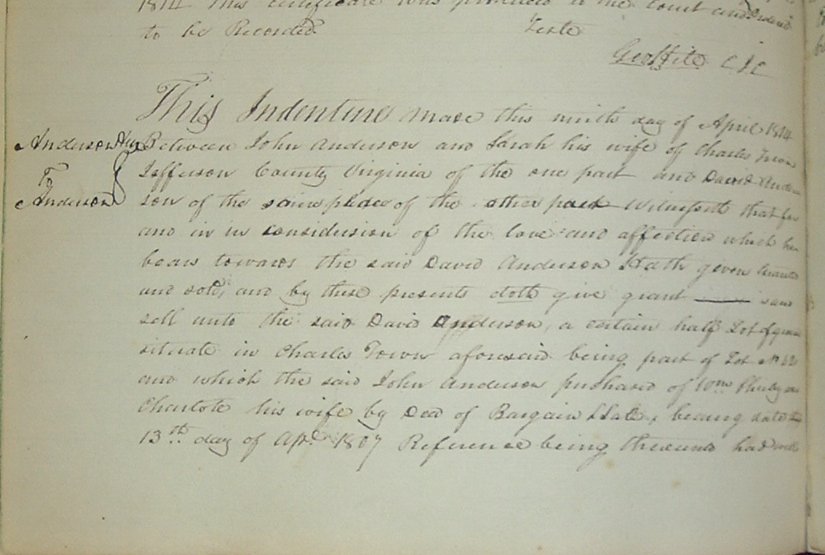 1814 This certificate was produced to the court and Ordered
to be Recorded Teste
Geo Hite C J C
This Indenture made this ninth day of April 1814
Anderson
To
Anderson
Between John Anderson and Sarah his wife of Charles Town
Jefferson County Virginia of the one part and David Ander
son of the same place of the other part Witnesseth that for
and in in consideration of the love and affection which he
bears towards the said David Anderson Hath given granted
and sold, and by these presents doth give grant and
sell unto the said David Anderson, a certain half Lot of ground
situate in Charles Town aforesaid being part of Lot No
and which the said John Anderson puchased of Wm and
Charlote his wife by Deed of Bargain & Sale, bearing date the
13th day of Apl 1807 Reference being thereunto had will